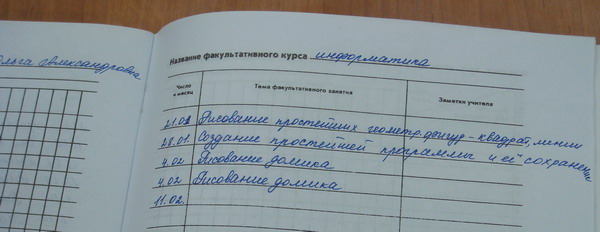 Ольга Александровна
Название факультативного курса информатика
Число и месяц
Тема факультативного занятия
Заметки учителя
21.01 Рисование простейших геометр. фигур - квадрат, линии
28.01. Создание простейшей программы и её сохранение
4.02 Рисование домика
4.02 Рисование домика
11.02.